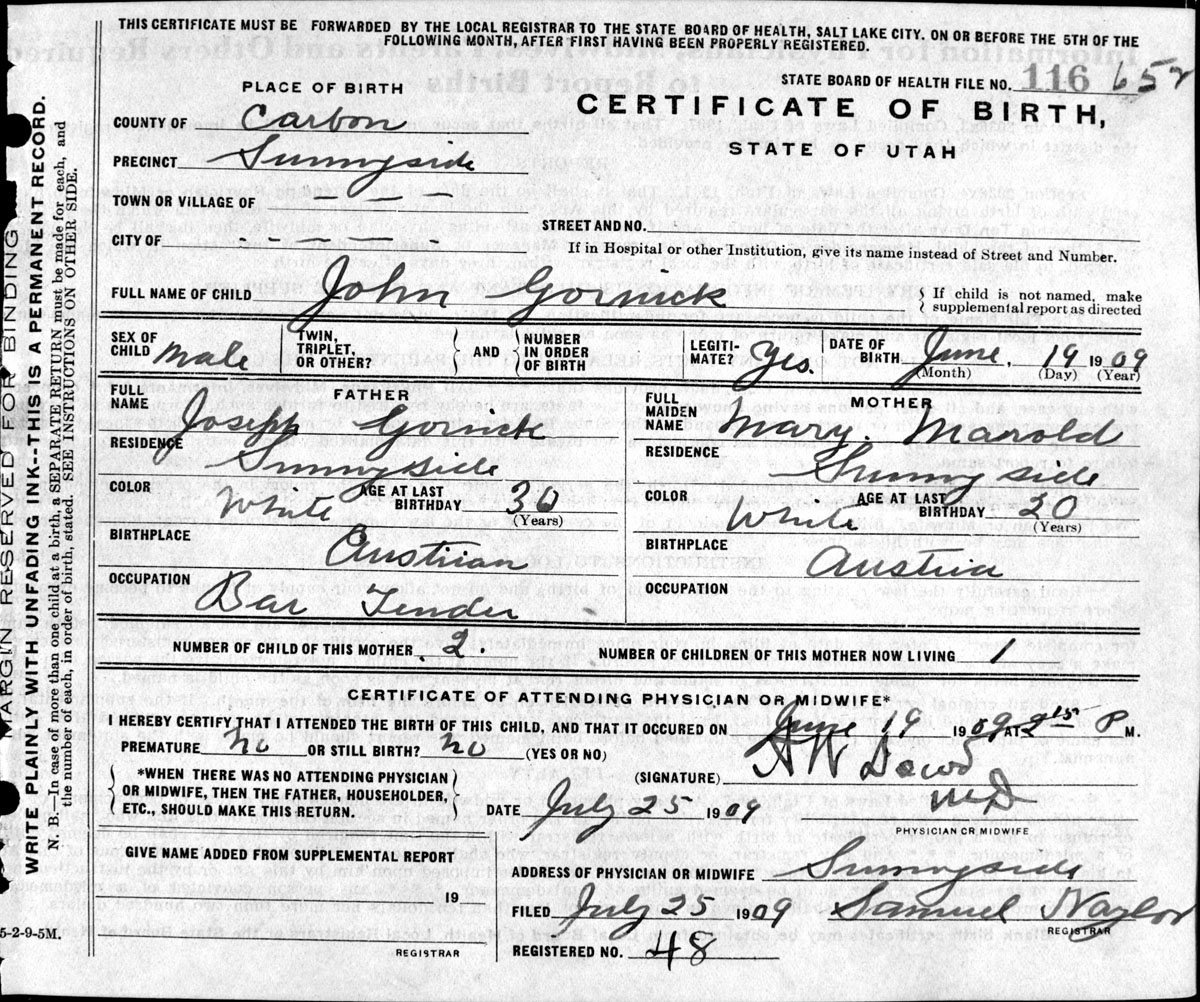 THIS CERTIFICATE MUST BE FORWARDED BY THE LOCAL REGISTRAR TO THE STATE BOARD OF HEALTH, SALT LAKE CITY. ON OR BEFORE THE 5TH OF THE
FOLLOWING MONTH, AFTER FIRST HAVING BEEN PROPERLY REGISTERED.
STATE BOARD OF HEALTH FILE NO. 116 652
MARGIN RESERVED FOR BINDING
WRITE PLAINLY WITH UNFADING INK--THIS IS A PERMANENT RECORD.
N. B.—In case of more than one child at a birth, a SEPARATE RETURN must be made for each, and
the number of each, in order of birth, stated. SEE INSTRUCTIONS ON OTHER SIDE.
PLACE OF BIRTH
CERTIFICATE OF BIRTH,
STATE OF UTAH
COUNTY OF Carbon
PRECINCT Sunnyside
TOWN OR VILLAGE OF - - -
STREET AND NO.
CITY OF - - - -
If in Hospital or other Institution, give its name instead of Street and Number.
FULL NAME OF CHILD John Gornick
{ If child is not named, make
supplemental report as directed
SEX OF CHILD male
TWIN, TRIPLET, OR OTHER?
{ AND }
NUMBER IN ORDER OF BIRTH
LEGITIMATE? Yes.
DATE OF BIRTH June, 19 1909
(Month) (Day) (Year)
FATHER
FULL NAME Joseph Gornik
RESIDENCE Sunnyside
COLOR White
AGE AT LAST BIRTHDAY 30
(Years)
BIRTHPLACE Austrian
OCCUPATION Bar Tender
MOTHER
FULL MAIDEN NAME Mary. Marold
RESIDENCE Sunnyside
COLOR White
AGE AT LAST BIRTHDAY 20
(Years)
BIRTHPLACE Austria
OCCUPATION
NUMBER OF CHILD OF THIS MOTHER 2.
NUMBER OF CHILDREN OF THIS MOTHER NOW LIVING 1
CERTIFICATE OF ATTENDING PHYSICIAN OR MIDWIFE*
I HEREBY CERTIFY THAT I ATTENDED THE BIRTH OF THIS CHILD, AND THAT IT OCCURED ON June 19 1909 AT P M.
PREMATURE no OR STILL BIRTH? no (YES OR NO)
(SIGNATURE) MD
{ *WHEN THERE WAS NO ATTENDING PHYSICIAN
OR MIDWIFE, THEN THE FATHER, HOUSEHOLDER,
ETC., SHOULD MAKE THIS RETURN. }
DATE July 25 1909
PHYSICIAN OR MIDWIFE
GIVE NAME ADDED FROM SUPPLEMENTAL REPORT
19
REGISTRAR
ADDRESS OF PHYSICIAN OR MIDWIFE Sunnyside
FILED July 25 1909 Samuel Naylor
REGISTRAR
REGISTERED NO. 48
5-2-9-5M.